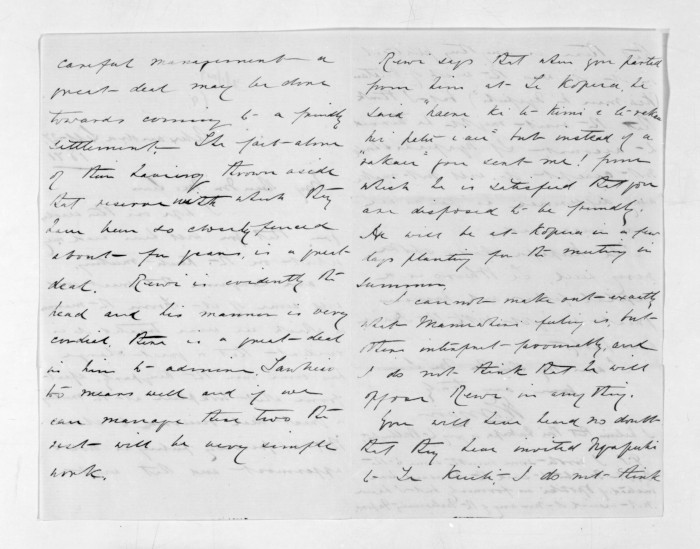 careful management a
great deal may be done
towards coming to a friendly
settlement. The fact alone
of their having thrown aside
that reserve with which they
have been so closely fenced
about for years, is a great
deal. Rewi is evidently the
head and his manner is very
cordial, there is a great deal
in him to admire. Tawhiao
too means well and if we
can manage these two the
rest will be very simple
work.
Rewi says that when you parted
from him at Te Kopua, he
said "haere ki te kimi i te rakau
hei" but instead of a
"rakau" you sent me! from
which he is satisfied that you
are disposed to be friendly.
He will be at Kopua in a few
days planting for the meeting in
summer.
I cannot make out exactly
what Manuhiri's feeling is, but
others interpret favourably, and
I do not think that he will
oppose Rewi in anything.
You will have heard no doubt
that they have invited Ngapuhi
to Te Kuiti. I do not think